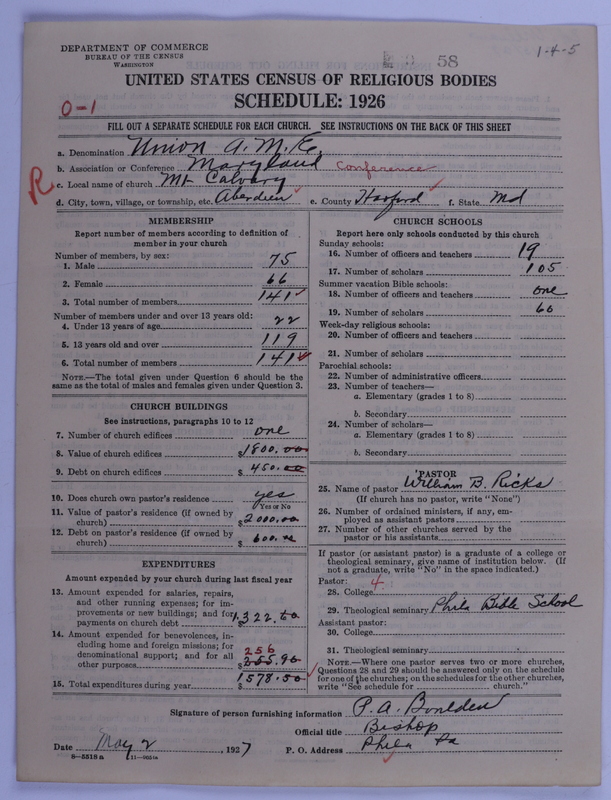 DEPARTMENT OF COMMERCE
BUREAU OF THE CENSUS
WASHINGTON
58
1-4-5
UNITED STATES CENSUS OF RELIGIOUS BODIES
SCHEDULE: 1926
0-1
FILL OUT A SEPARATE SCHEDULE FOR EACH CHURCH. SEE INSTRUCTIONS ON THE BACK OF THIS SHEET
a. Denomination Union A.M.E.
b. Association or Conference Maryland Conference
R
c. Local name of church Mt Calvary
d. City, town, village, or township, etc. Aberdeen e. County Harford f. State Md
MEMBERSHIP
Report number of members according to definition of
member in your church
Number of members, by sex:
1. Male 75
2. Female 66
3. Total number of members 141
Number of members under and over 13 years old:
4. Under 13 years of age 22
5. 13 years old and over 119
6. Total number of members 141
NOTE.—The total given under Question 6 should be the
same as the total of males and females given under Question 3.
CHURCH BUILDINGS
See instructions, paragraphs 10 to 12
7. Number of church edifices one
8. Value of church edifices $1800.00
9. Debt on church edifices $450.00
10. Does church own pastor's residence yes
Yes or No
11. Value of pastor's residence (if owned by
church) $2000.00
12. Debt on pastor's residence (if owned by
church) $600.00
EXPENDITURES
Amount expended by your church during last fiscal year
13. Amount expended for salaries, repairs,
and other running expenses; for im-
provements or new buildings; and for
payments on church debt 1,322.60
14. Amount expended for benevolences, in-
cluding home and foreign missions; for
denominational support; and for all 256
other purposes $255.90
15. Total expenditures during year $1578.50
CHURCH SCHOOLS
Report here only schools conducted by this church
Sunday schools:
16. Number of officers and teachers 19
17. Number of scholars 105
Summer vacation Bible schools:
18. Number of officers and teachers one
19. Number of scholars 60
Week-day religious schools:
20. Number of officers and teachers
21. Number of scholars
Parochial schools:
22. Number of administrative officers
23. Number of teachers—
a. Elementary (grades 1 to 8)
b. Secondary
24. Number of scholars—
a. Elementary (grades 1 to 8)
b. Secondary
PASTOR
25. Name of pastor William B. Ricks
(If church has no pastor, write "None")
26. Number of ordained ministers, if any, em-
ployed as assistant pastors
27. Number of other churches served by the
pastor or his assistants
If pastor (or assistant pastor) is a graduate of a college or
theological seminary, give name of institution below. (If
not a graduate, write "No" in the space indicated.)
Pastor: 4
28. College
29. Theological seminary Phila Bible School
Assistant pastor:
30. College
31. Theological seminary
NOTE.—Where one pastor serves two or more churches,
Questions 28 and 29 should be answered only on the schedule
for one of the churches; on the schedules for the other churches,
write "See schedule for church."
Signature of person furnishing information P. A. Boulden
Official title Bishop
Date May 2, 1927 P. O. Address Phila Pa
8-5518 a